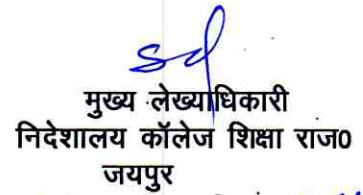 sd
मुख्य लेख्याधिकारी
निदेशालय कॉलेज शिक्षा राज0
जयपुर